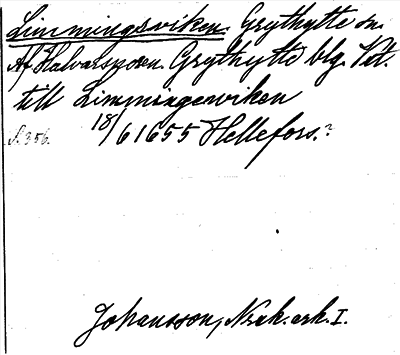 Limmingsviken. Grythytte sn.
Af Halvarsporn. Grythytte blg. Vet.
till Limmingewiken
18/6 1655 Hellefors.?
S. 356.
Johansson, Nrak. ark. I.